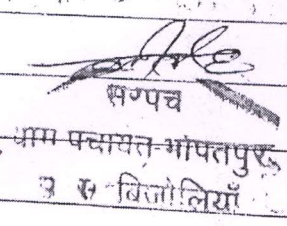 सरपंच
ग्राम पंचायत-भोपतपुरा
बिजोलियाँ